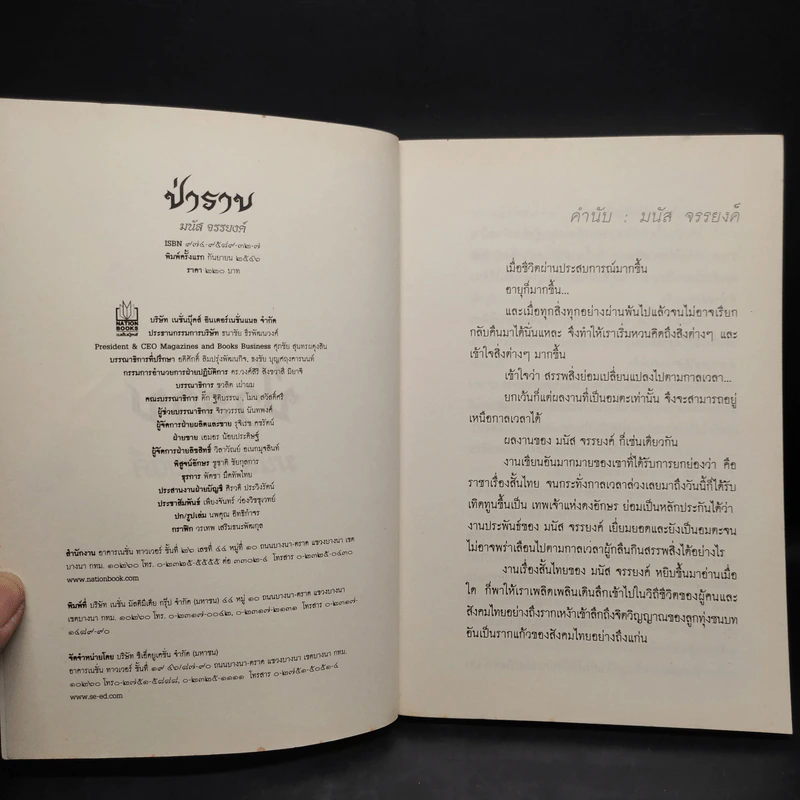 ป่าราบ
มนัส จรรยงค์
ISBN ๙๗๔-๙๕๘๙-๓๒-๗
พิมพ์ครั้งแรก กันยายน ๒๕๔๖
ราคา ๒๒๐ บาท
NATION
BOOKS
บริษัท เนชั่นบุ๊คส์ อินเตอร์เนชั่นแนล จำกัด
ประธานกรรมการบริษัท ธนาชัย ธีรพัฒนวงศ์
President & CEO Magazines and Books Business ศุภชัย สุนทรยคุงสิน
บรรณาธิการที่ปรึกษา อดิศักดิ์ ลิมปรุ่งพัฒนกิจ, ธงชัย
กรรมการอำนวยการฝ่ายปฏิบัติการ ดร.วงศ์สิริ สังขวาสี มิยาจิ
บรรณาธิการ ชวลิต
คณะบรรณาธิการ ติ๊ก ฐิติบรรณ, โมน สวัสดิ์ศรี
ผู้ช่วยบรรณาธิการ จิราวรรณ นันทพงศ์
ผู้จัดการฝ่ายผลิตและขาย รุจิเรข คชรัตน์
ฝ่ายขาย เอมอร น้อยประดิษฐ์
ผู้จัดการฝ่ายลิขสิทธิ์ วิลาวัณย์ อเนกมุขสินท์
พิสูจน์อักษร ชูชาติ ชัยกุลการ
ธุรการ พัดชา มีดทัพไทย
ประสานงานฝ่ายบัญชี ศิรวดี ประวิงรัตน์
ประชาสัมพันธ์ เพียงจันทร์ ว่องวิชชุเวทย์
ปก/รูปเล่ม นพคุณ อิทธิกำจร
กราฟิก วรเทพ เสริมธนะพัฒกุล
สำนักงาน อาคารเนชั่น ทาวเวอร์ ชั้นที่ ๒๖ เลขที่ ๔๔ หมู่ที่ ๑๐ ถนนบางนา-ตราด แขวงบางนา เขต
บางนา กทม. ๑๐๒๖๐ โทร. ๐-๒๓๒๕-๕๕๕๕ ต่อ ๓๐๒๒-๔ โทรสาร ๐-๒๓๒๕-๐๔๓๐
www.nationbook.com
พิมพ์ที่ บริษัท เนชั่น มัลติมีเดีย กรุ๊ป จำกัด (มหาชน) ๔๔ หมู่ ๑๐ ถนนบางนา-ตราด แขวงบางนา
เขตบางนา กทม. ๑๐๒๖๐ โทร. ๐-๒๓๑๗-๐๐๔๒, ๐-๒๓๑๗-๒๑๓๑ โทรสาร ๐-๒๓๑๗-
๑๔๘๙-๙๐
จัดจำหน่ายโดย บริษัท ซีเอ็ดยูเคชั่น จำกัด (มหาชน)
อาคารเนชั่น ทาวเวอร์ ชั้นที่ ๑๙ ๔๖/๘๗-๙๐ ถนนบางนา-ตราด แขวงบางนา เขตบางนา กทม.
๑๐๒๖๐ โทร๐-๒๗๕๑-๕๘๘๘, ๐-๒๓๒๕-๑๑๑๑ โทรสาร ๐-๒๗๕๑-๕๐๕๑-๔
www.se-ed.com
คำนับ : มนัส จรรยงค์
เมื่อชีวิตผ่านประสบการณ์มากขึ้น
อายุก็มากขึ้น...
และเมื่อทุกสิ่งทุกอย่างผ่านพ้นไปแล้วจนไม่อาจเรียก
กลับคืนมาได้นั่นแหละ จึงทำให้เราเริ่มหวนคิดถึงสิ่งต่างๆ และ
เข้าใจสิ่งต่างๆ มากขึ้น
เข้าใจว่า สรรพสิ่งย่อมเปลี่ยนแปลงไปตามกาลเวลา...
ยกเว้นก็แต่ผลงานที่เป็นอมตะเท่านั้น จึงจะสามารถอยู่
เหนือกาลเวลาได้
ผลงานของ มนัส จรรยงค์ ก็เช่นเดียวกัน
งานเขียนอันมากมายของเขาที่ได้รับการยกย่องว่า คือ
ราชาเรื่องสั้นไทย จนกระทั่งกาลเวลาล่วงเลยมาถึงวันนี้ก็ได้รับ
เทิดทูนขึ้นเป็น เทพเจ้าแห่งดงอักษร ย่อมเป็นหลักประกันได้ว่า
งานประพันธ์ของ มนัส จรรยงค์ เยี่ยมยอดและยังเป็นอมตะจน
ไม่อาจพร่าเลือนไปตามกาลเวลาผู้กลืนกินสรรพสิ่งได้อย่างไร
งานเรื่องสั้นไทยของ มนัส จรรยงค์ หยิบขึ้นมาอ่านเมื่อ
ใด ก็พาให้เราเพลิดเพลินเดินลึกเข้าไปในวิถีชีวิตของผู้คนและ
สังคมไทยอย่างถึงรากเหง้าเข้าลึกถึงจิตวิญญาณของลูกทุ่งชนบท
อันเป็นรากแก้วของสังคมไทยอย่างถึงแก่น